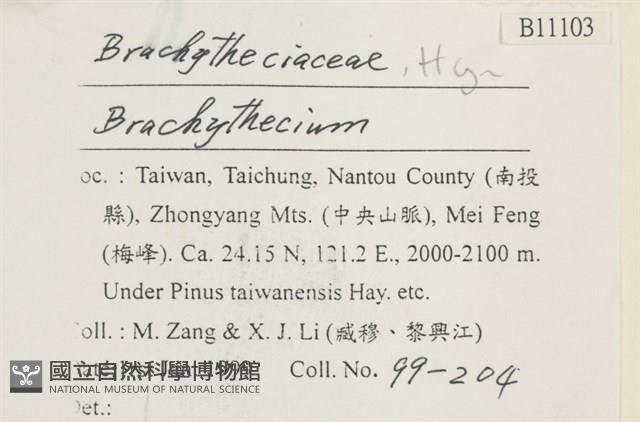 B11103
Brachytheciaceae
Brachythecium
oc. : Taiwan, Taichung, Nantou County (南投
縣), Zhongyang Mts. (中央山脈), Mei Feng
(梅峰). Ca. 24.15 N, 121.2 E., 2000-2100 m.
Under Pinus taiwanensis Hay. etc.
oll. : M. Zang & X. J. Li (臧穆、黎興江)
Coll. No. 99-204
國立自然科學博物館
NATIONAL MUSEUM OF NATURAL SCIENCE
et.: